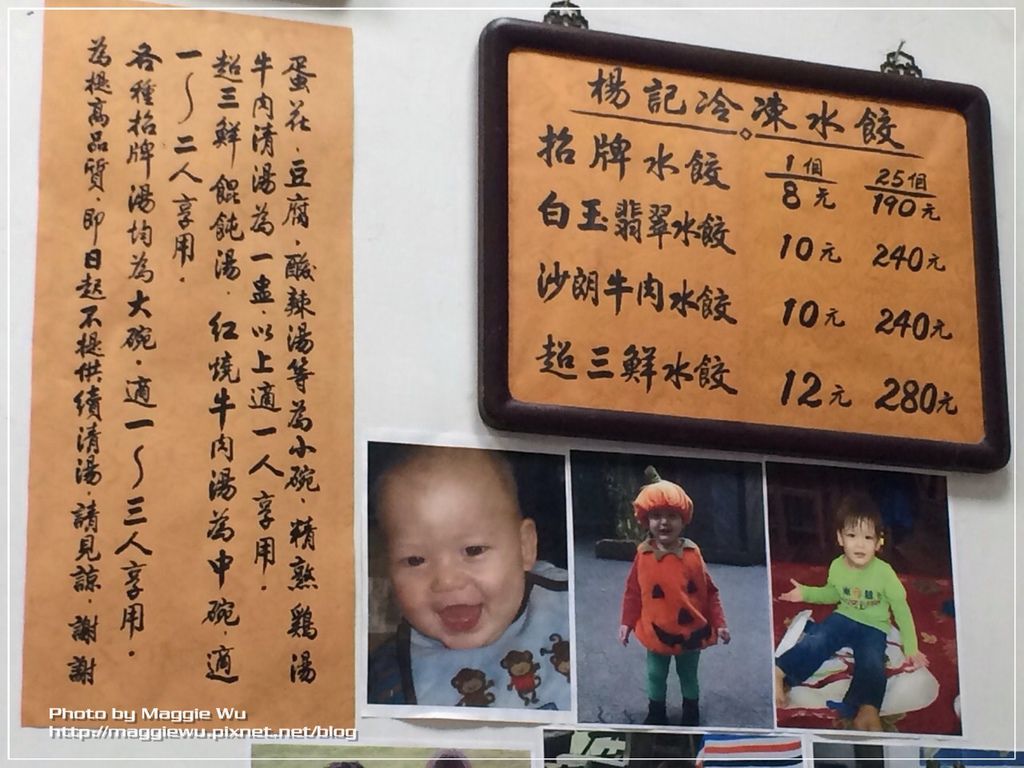 蛋花、豆腐、酸辣湯等為小碗、精熟鷄湯
牛肉清湯為一盅、以上適一人享用。
超三鮮餛飩湯、紅燒牛肉湯為中碗、適
一～二人享用。
各種招牌湯均為大碗、適一～三人享用。
為提高品質、即日起不提供續清湯、請見諒、謝謝
楊記冷凍水餃
1個 25個
招牌水餃 8元 190元
白玉翡翠水餃 10元 240元
沙朗牛肉水餃 10元 240元
超三鮮水餃 12元 280元
Photo by Maggie Wu
http://maggiewu.pixnet.net/blog